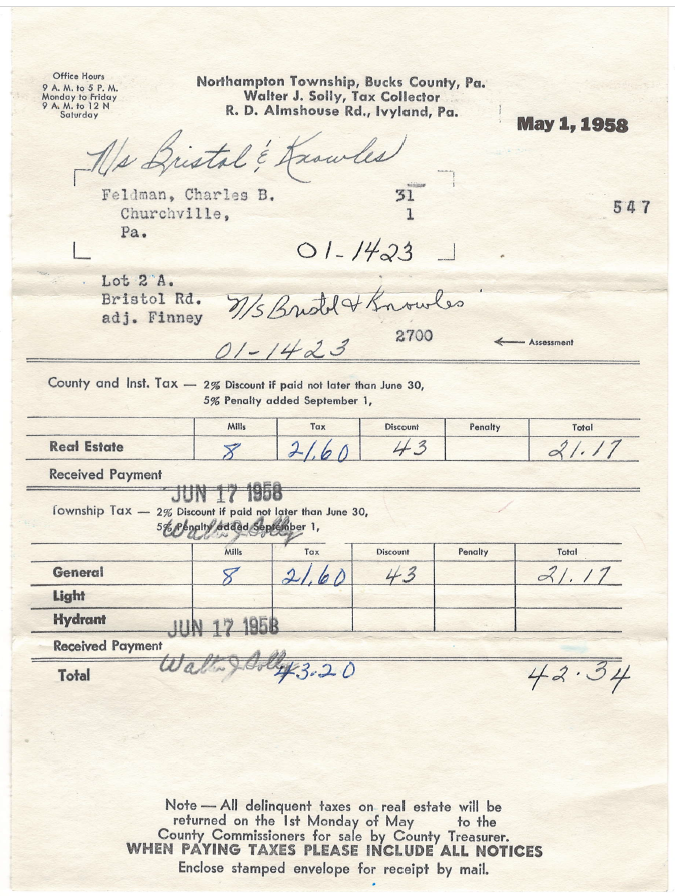 Office Hours
9 A. M. to 5 P. M.
Monday to Friday
9 A. M. to 12 N
Saturday
Northampton Township, Bucks County, Pa.
Walter J. Solly, Tax Collector
R. D. Almshouse Rd., Ivyland, Pa.
May 1, 1958
N/s Bristol & Knowles
Feldman, Charles B. 31
Churchville, 1
Pa.
547
01-1423
Lot 2 A.
Bristol Rd.
adj. Finney
N/s Bristol & Knowles
2700 ← Assessment
01-1423
County and Inst. Tax — 2% Discount if paid not later than June 30,
5% Penalty added September 1,
Mills Tax Discount Penalty Total
Real Estate 8 21.60 43 21.17
Received Payment
JUN 17 1958
Township Tax — 2% Discount if paid not later than June 30,
5% Penalty added September 1,
Walter J. Solly
Mills Tax Discount Penalty Total
General 8 21.60 43 21.17
Light
Hydrant
JUN 17 1958
Received Payment
Walter J. Solly
Total 43.20 42.34
Note — All delinquent taxes on real estate will be
returned on the 1st Monday of May to the
County Commissioners for sale by County Treasurer.
WHEN PAYING TAXES PLEASE INCLUDE ALL NOTICES
Enclose stamped envelope for receipt by mail.